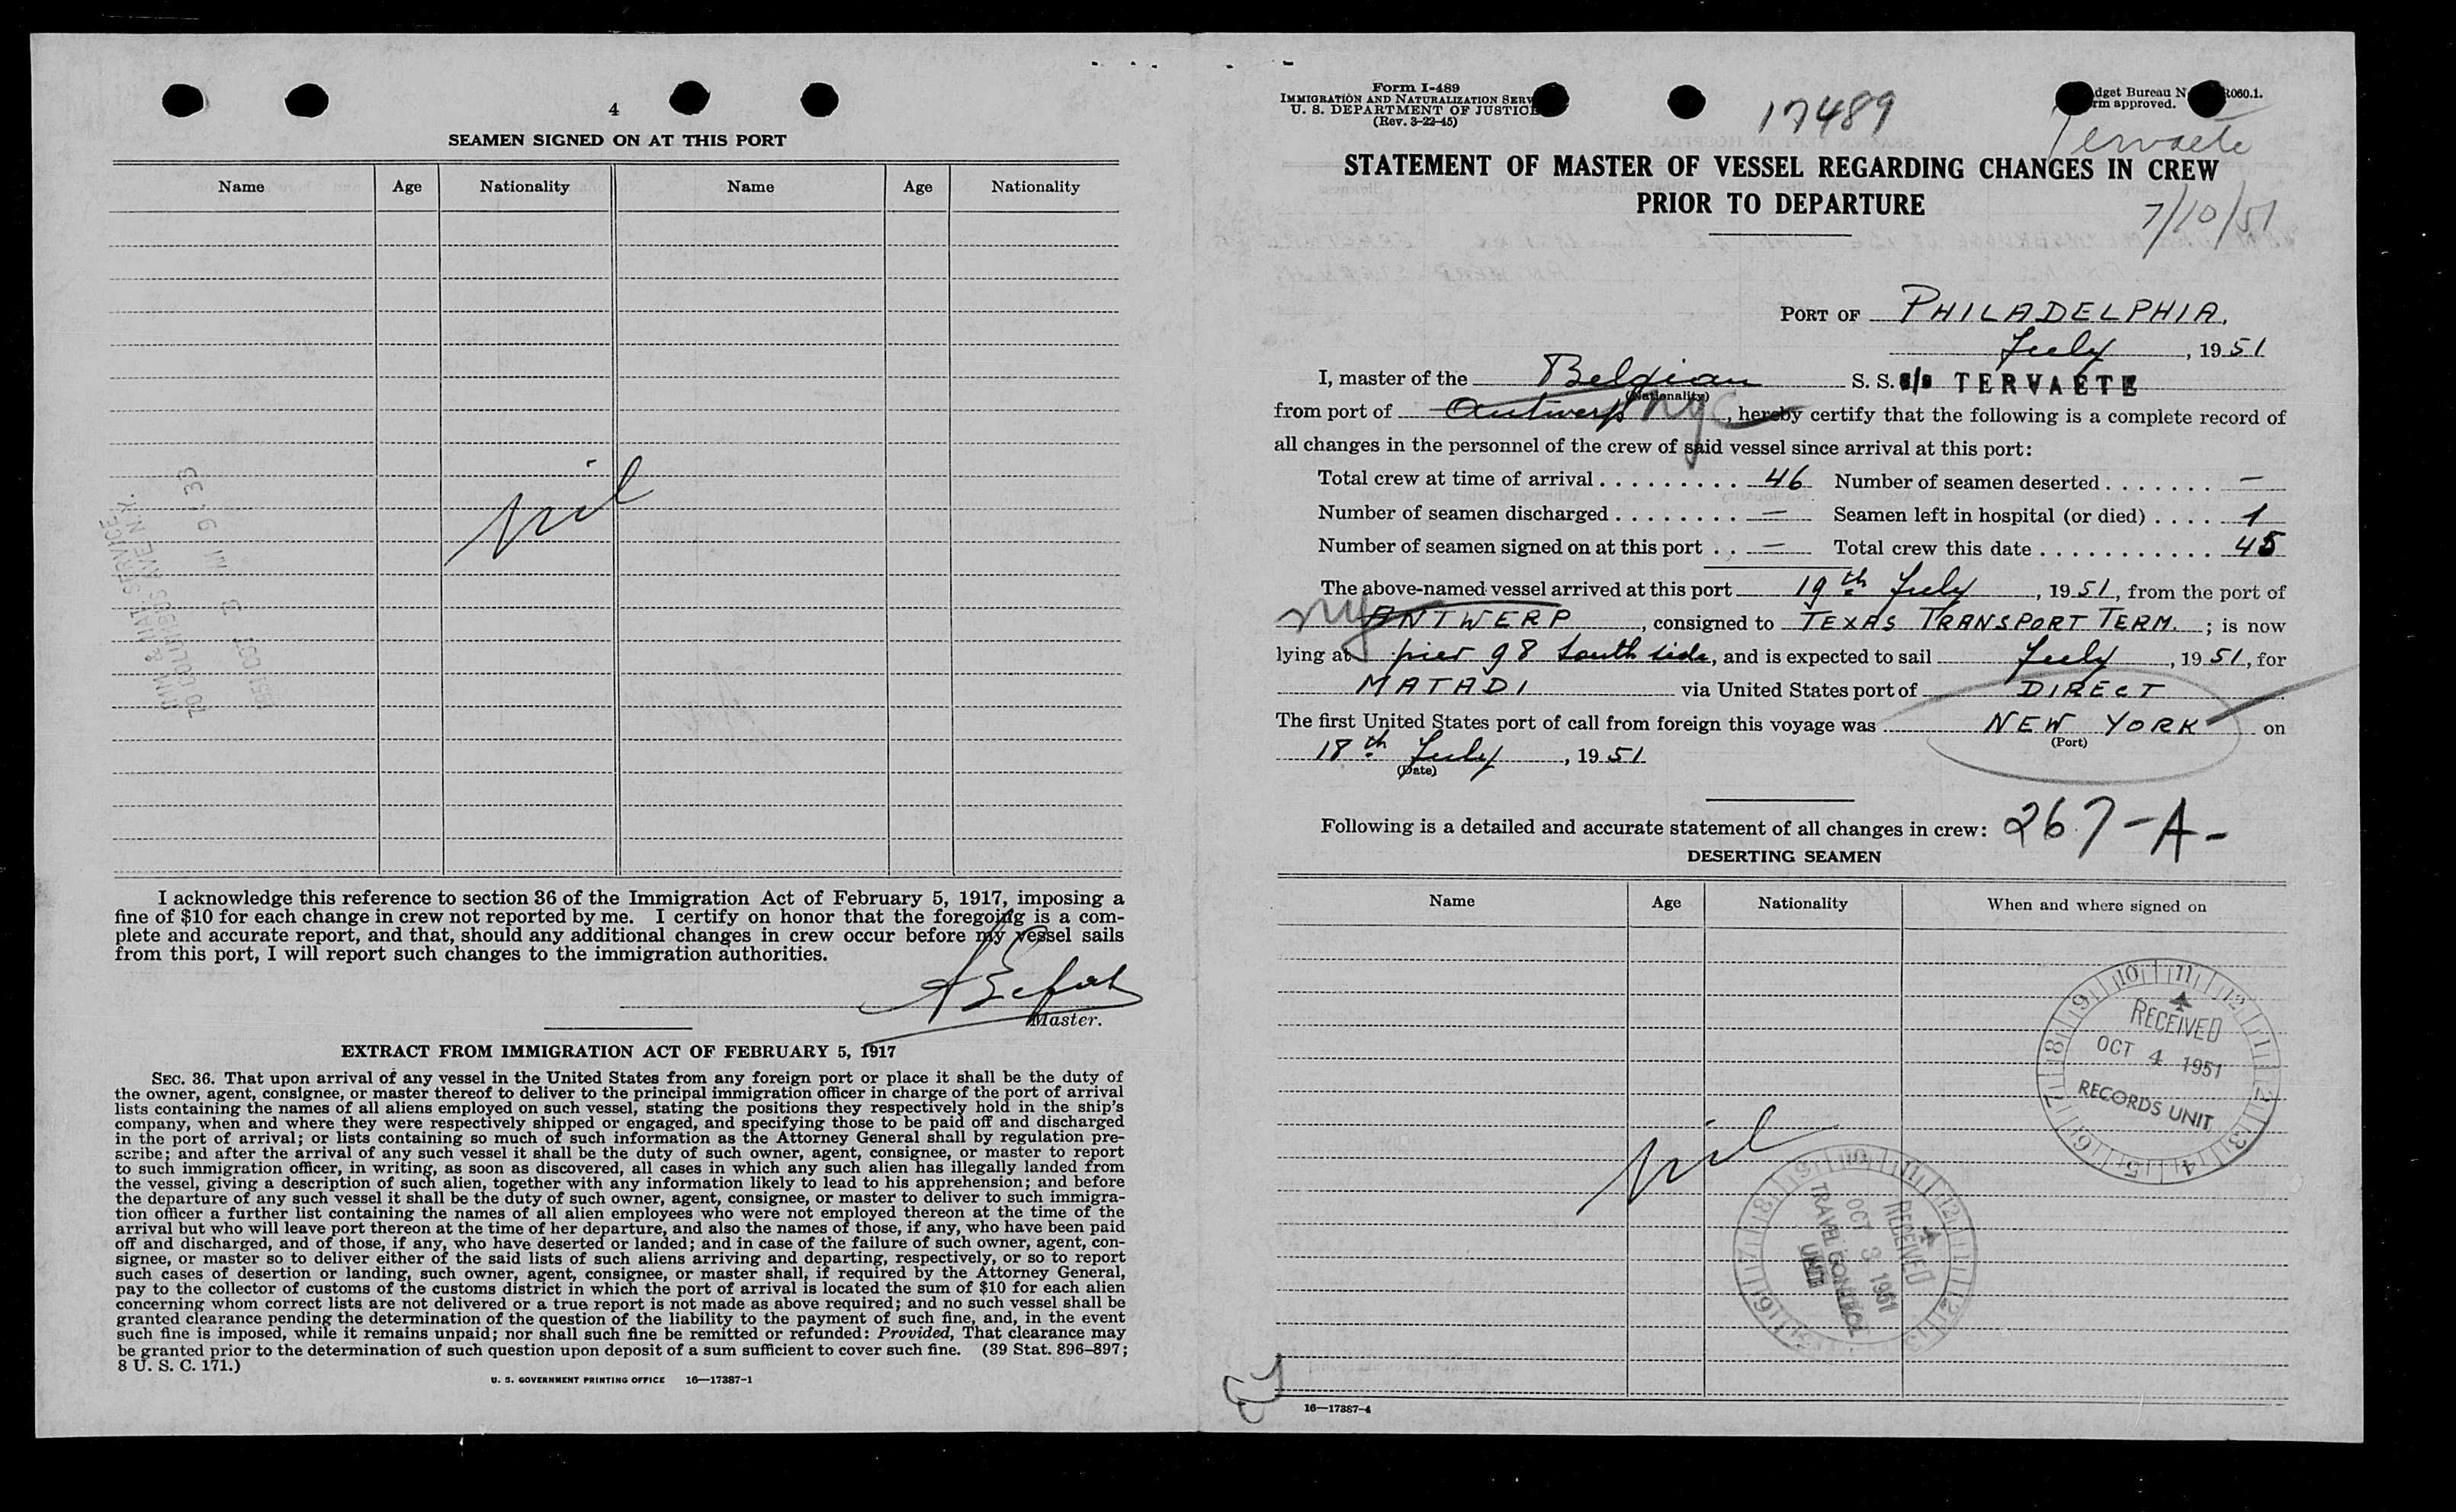 4
SEAMEN SIGNED ON AT THIS PORT
Name Age Nationality Name Age Nationality
nil
I acknowledge this reference to section 36 of the Immigration Act of February 5, 1917, imposing a
fine of $10 for each change in crew not reported by me. I certify on honor that the foregoing is a com-
plete and accurate report, and that, should any additional changes in crew occur before my vessel sails
from this port, I will report such changes to the immigration authorities.
Master.
EXTRACT FROM IMMIGRATION ACT OF FEBRUARY 5, 1917
SEC. 36. That upon arrival of any vessel in the United States from any foreign port or place it shall be the duty of
the owner, agent, consignee, or master thereof to deliver to the principal immigration officer in charge of the port of arrival
lists containing the names of all aliens employed on such vessel, stating the positions they respectively hold in the ship's
company, when and where they were respectively shipped or engaged, and specifying those to be paid off and discharged
in the port of arrival; or lists containing so much of such information as the Attorney General shall by regulation pre-
scribe; and after the arrival of any such vessel it shall be the duty of such owner, agent, consignee, or master to report
to such immigration officer, in writing, as soon as discovered, all cases in which any such alien has illegally landed from
the vessel, giving a description of such alien, together with any information likely to lead to his apprehension; and before
the departure of any such vessel it shall be the duty of such owner, agent, consignee, or master to deliver to such immigra-
tion officer a further list containing the names of all alien employees who were not employed thereon at the time of the
arrival but who will leave port thereon at the time of her departure, and also the names of those, if any, who have been paid
off and discharged, and of those, if any, who have deserted or landed; and in case of the failure of such owner, agent, con-
signee, or master so to deliver either of the said lists of such aliens arriving and departing, respectively, or so to report
such cases of desertion or landing, such owner, agent, consignee, or master shall, if required by the Attorney General,
pay to the collector of customs of the customs district in which the port of arrival is located the sum of $10 for each alien
concerning whom correct lists are not delivered or a true report is not made as above required; and no such vessel shall be
granted clearance pending the determination of the question of the liability to the payment of such fine, and, in the event
such fine is imposed, while it remains unpaid; nor shall such fine be remitted or refunded: Provided, That clearance may
be granted prior to the determination of such question upon deposit of a sum sufficient to cover such fine. (39 Stat. 896–897;
8 U. S. C. 171.)
U. S. GOVERNMENT PRINTING OFFICE 16—17387-1
Form I-489
IMMIGRATION AND NATURALIZATION SERV
U. S. DEPARTMENT OF JUSTICE
(Rev. 3-22-45)
17489
dget Bureau N R060.1.
rm approved.
Tervaete
STATEMENT OF MASTER OF VESSEL REGARDING CHANGES IN CREW
PRIOR TO DEPARTURE
7/10/51
PORT OF PHILADELPHIA.
July, 1951
I, master of the Belgian S. S. S/S TERVAETE
(Nationality)
from port of Antwerp NYC, hereby certify that the following is a complete record of
all changes in the personnel of the crew of said vessel since arrival at this port:
Total crew at time of arrival . . . . . . . . . 46 Number of seamen deserted . . . . . . . —
Number of seamen discharged . . . . . . . . — Seamen left in hospital (or died) . . . . 1
Number of seamen signed on at this port . . — Total crew this date . . . . . . . . . . . 45
The above-named vessel arrived at this port 19th July, 1951, from the port of
NY ANTWERP, consigned to TEXAS TRANSPORT TERM.; is now
lying at pier 98 South side, and is expected to sail July, 1951, for
MATADI via United States port of DIRECT
The first United States port of call from foreign this voyage was NEW YORK on
(Port)
18th July, 1951
(Date)
Following is a detailed and accurate statement of all changes in crew: 267-A-
DESERTING SEAMEN
Name Age Nationality When and where signed on
RECEIVED
OCT 4 1951
RECORDS UNIT
nil
RECEIVED
OCT 3 1951
TRAVEL CONTROL
UNIT
16—17387-4